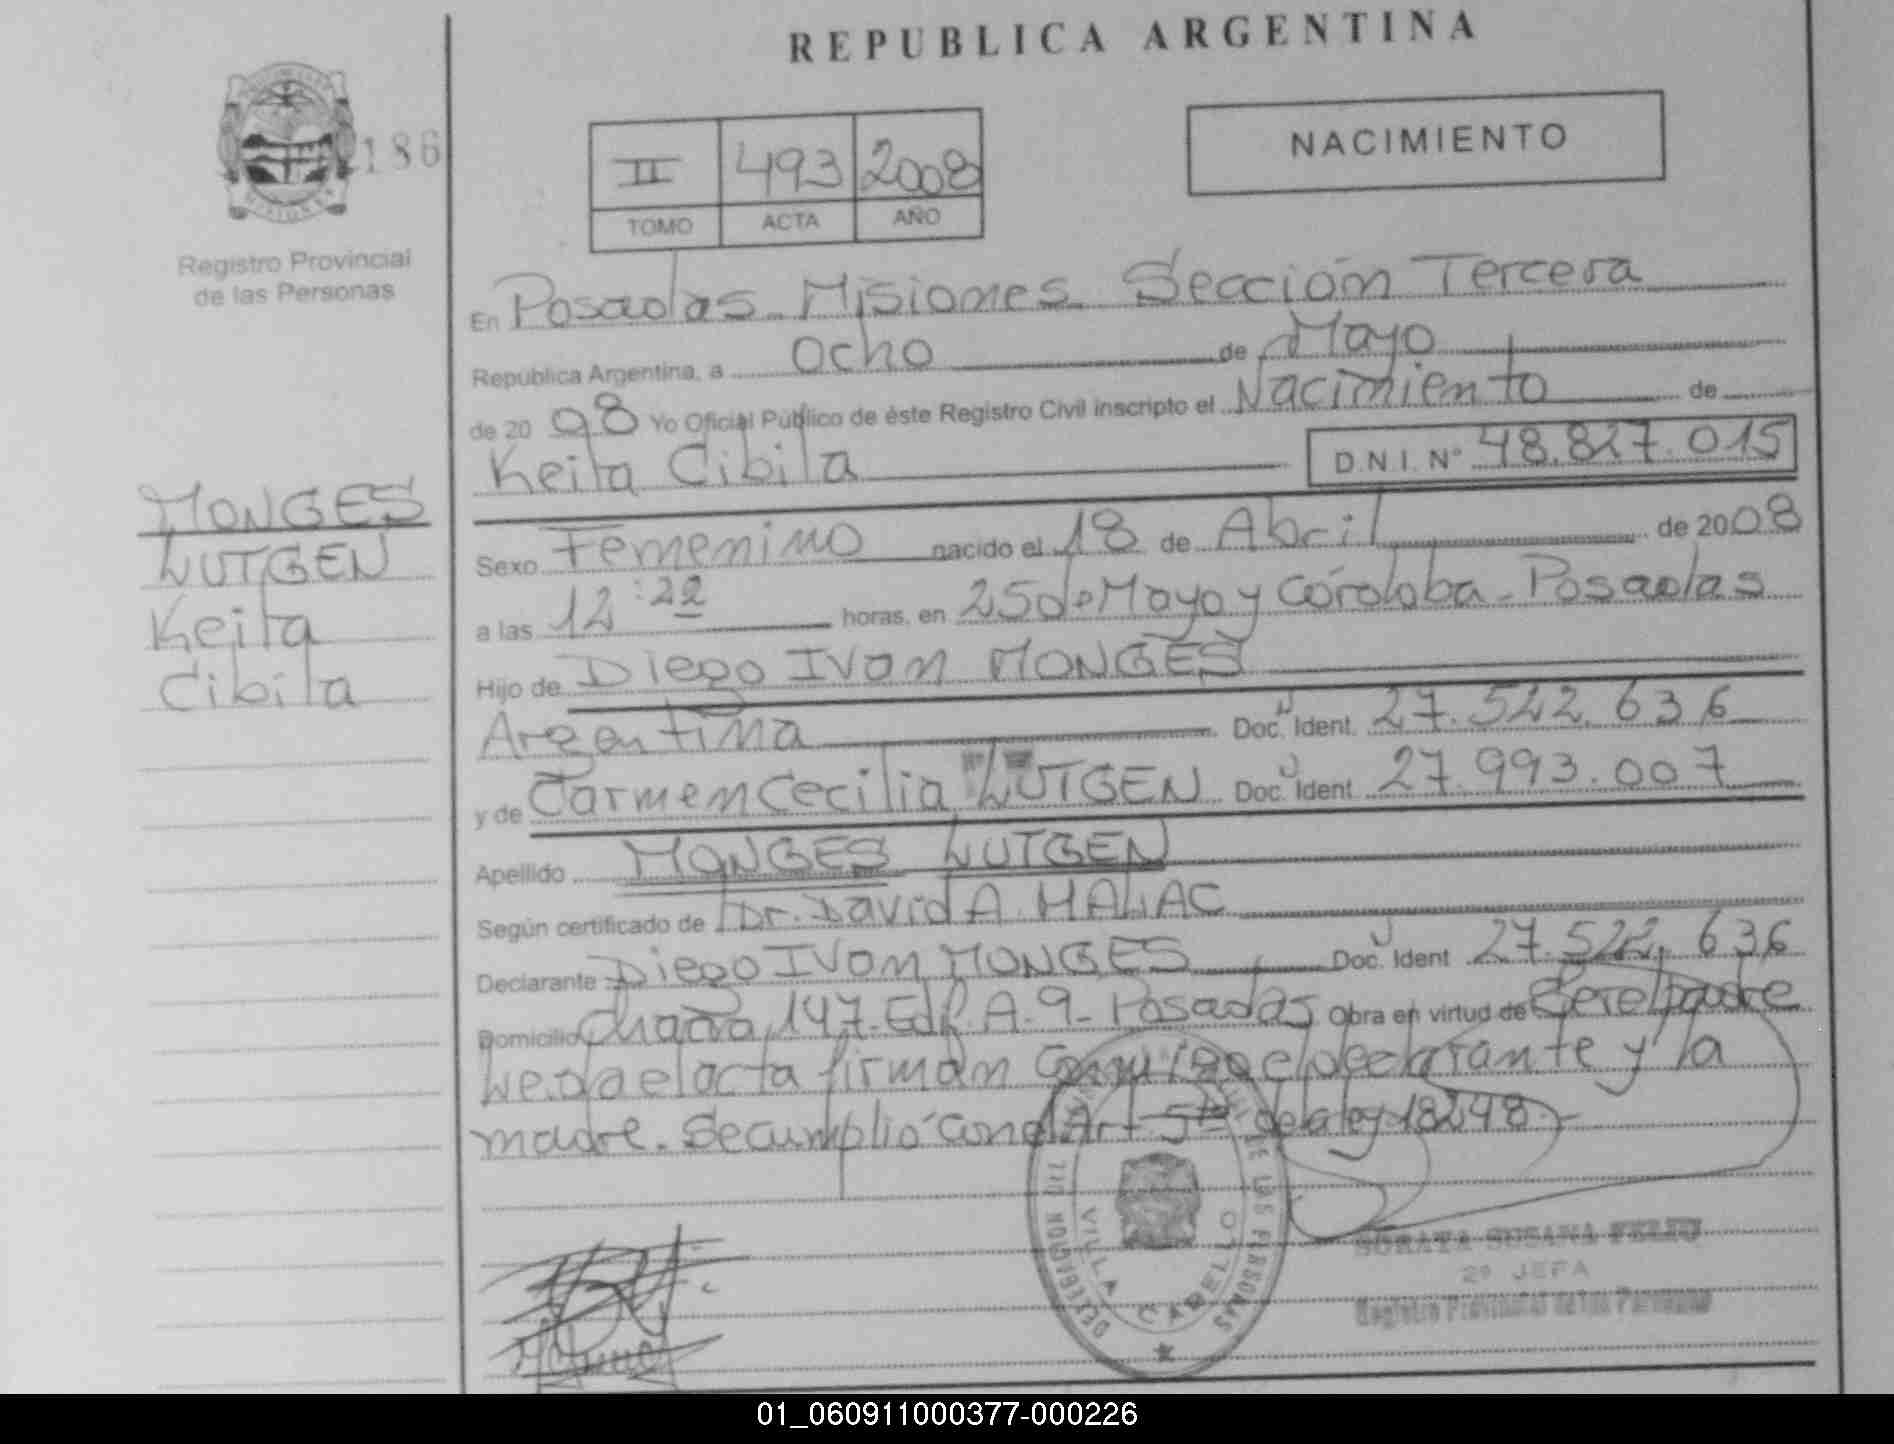 REPUBLICA ARGENTINA
186
II 493 2008
TOMO ACTA AÑO
NACIMIENTO
Registro Provincial
de las Personas
MONGES
LUTGEN
Keila
Cibila
En Posadas Misiones Sección Tercera
República Argentina, a Ocho de Mayo
de 2008 Yo Oficial Público de éste Registro Civil inscripto el Nacimiento de
Keila Cibila D.N.I. N° 48.827.015
Sexo Femenino nacido el 18 de Abril de 2008
a las 12:22 horas, en 25 de Mayo y Córdoba - Posadas
Hijo de Diego Ivan MONGES
Argentina Doc. Ident. 27.522.636
y de Carmen Cecilia LUTGEN Doc. Ident 27.993.007
Apellido MONGES LUTGEN
Según certificado de Dr. David A. MALAC
Declarante Diego Ivan MONGES Doc. Ident 27.522.636
Domicilio 147-Edf. A. 9- Posadas Obra en virtud de Ser el padre
Leida el acta firman conmigo el declarante y la
madre. Se cumplió con el Art 5to de la ley 18248.-
DELEGACION DE LAS PERSONAS
VILLA CABELLO
SORAYA SUSANA FELIU
2° JEFA
Registro Provincial de las Personas
01_060911000377-000226